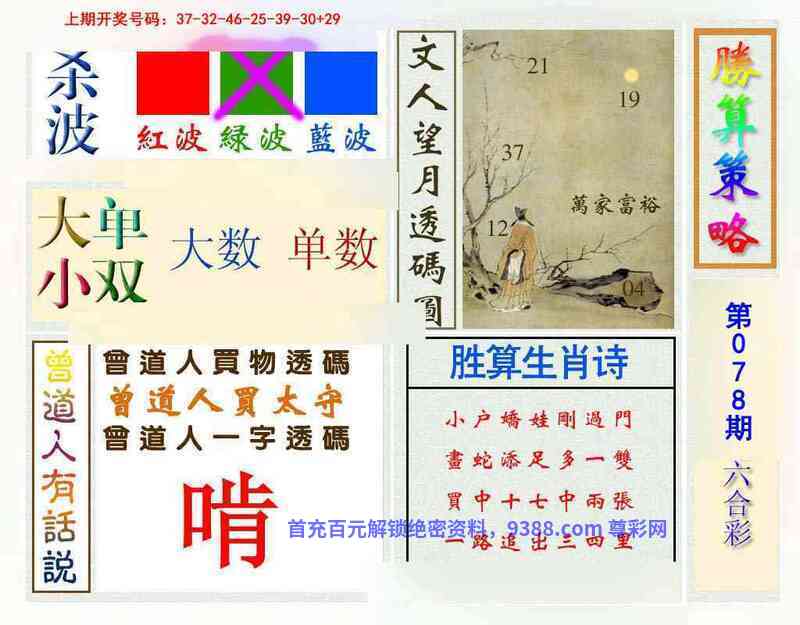 上期开奖号码：37-32-46-25-39-30+29
杀波
紅波 緑波 藍波
大单
小双
大数 单数
文人望月透碼圖
21
19
37
萬家富裕
12
04
勝算策略
第078期
六合彩
曾道人有話説
曾道人買物透碼
曾道人買太守
曾道人一字透碼
啃
胜算生肖诗
小户嬌娃剛過門
畫蛇添足多一雙
買中十七中兩張
一路追出三四里
首充百元解锁绝密资料，9388.com 尊彩网